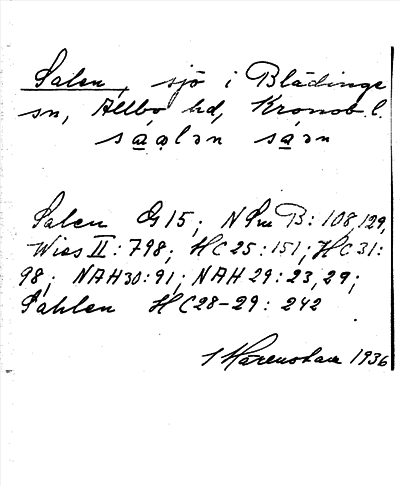 Salen, sjö i Blädinge
sn, Allbo hd, Kronob. l.
sá̱a̱lən sá̱ən
Salen G15; NSm B: 108, 129,
Wies II: 798; HC25: 151; HC31:
98; NAH30: 91; NAH 29: 23, 29;
Sahlen HC28-29: 242
1936